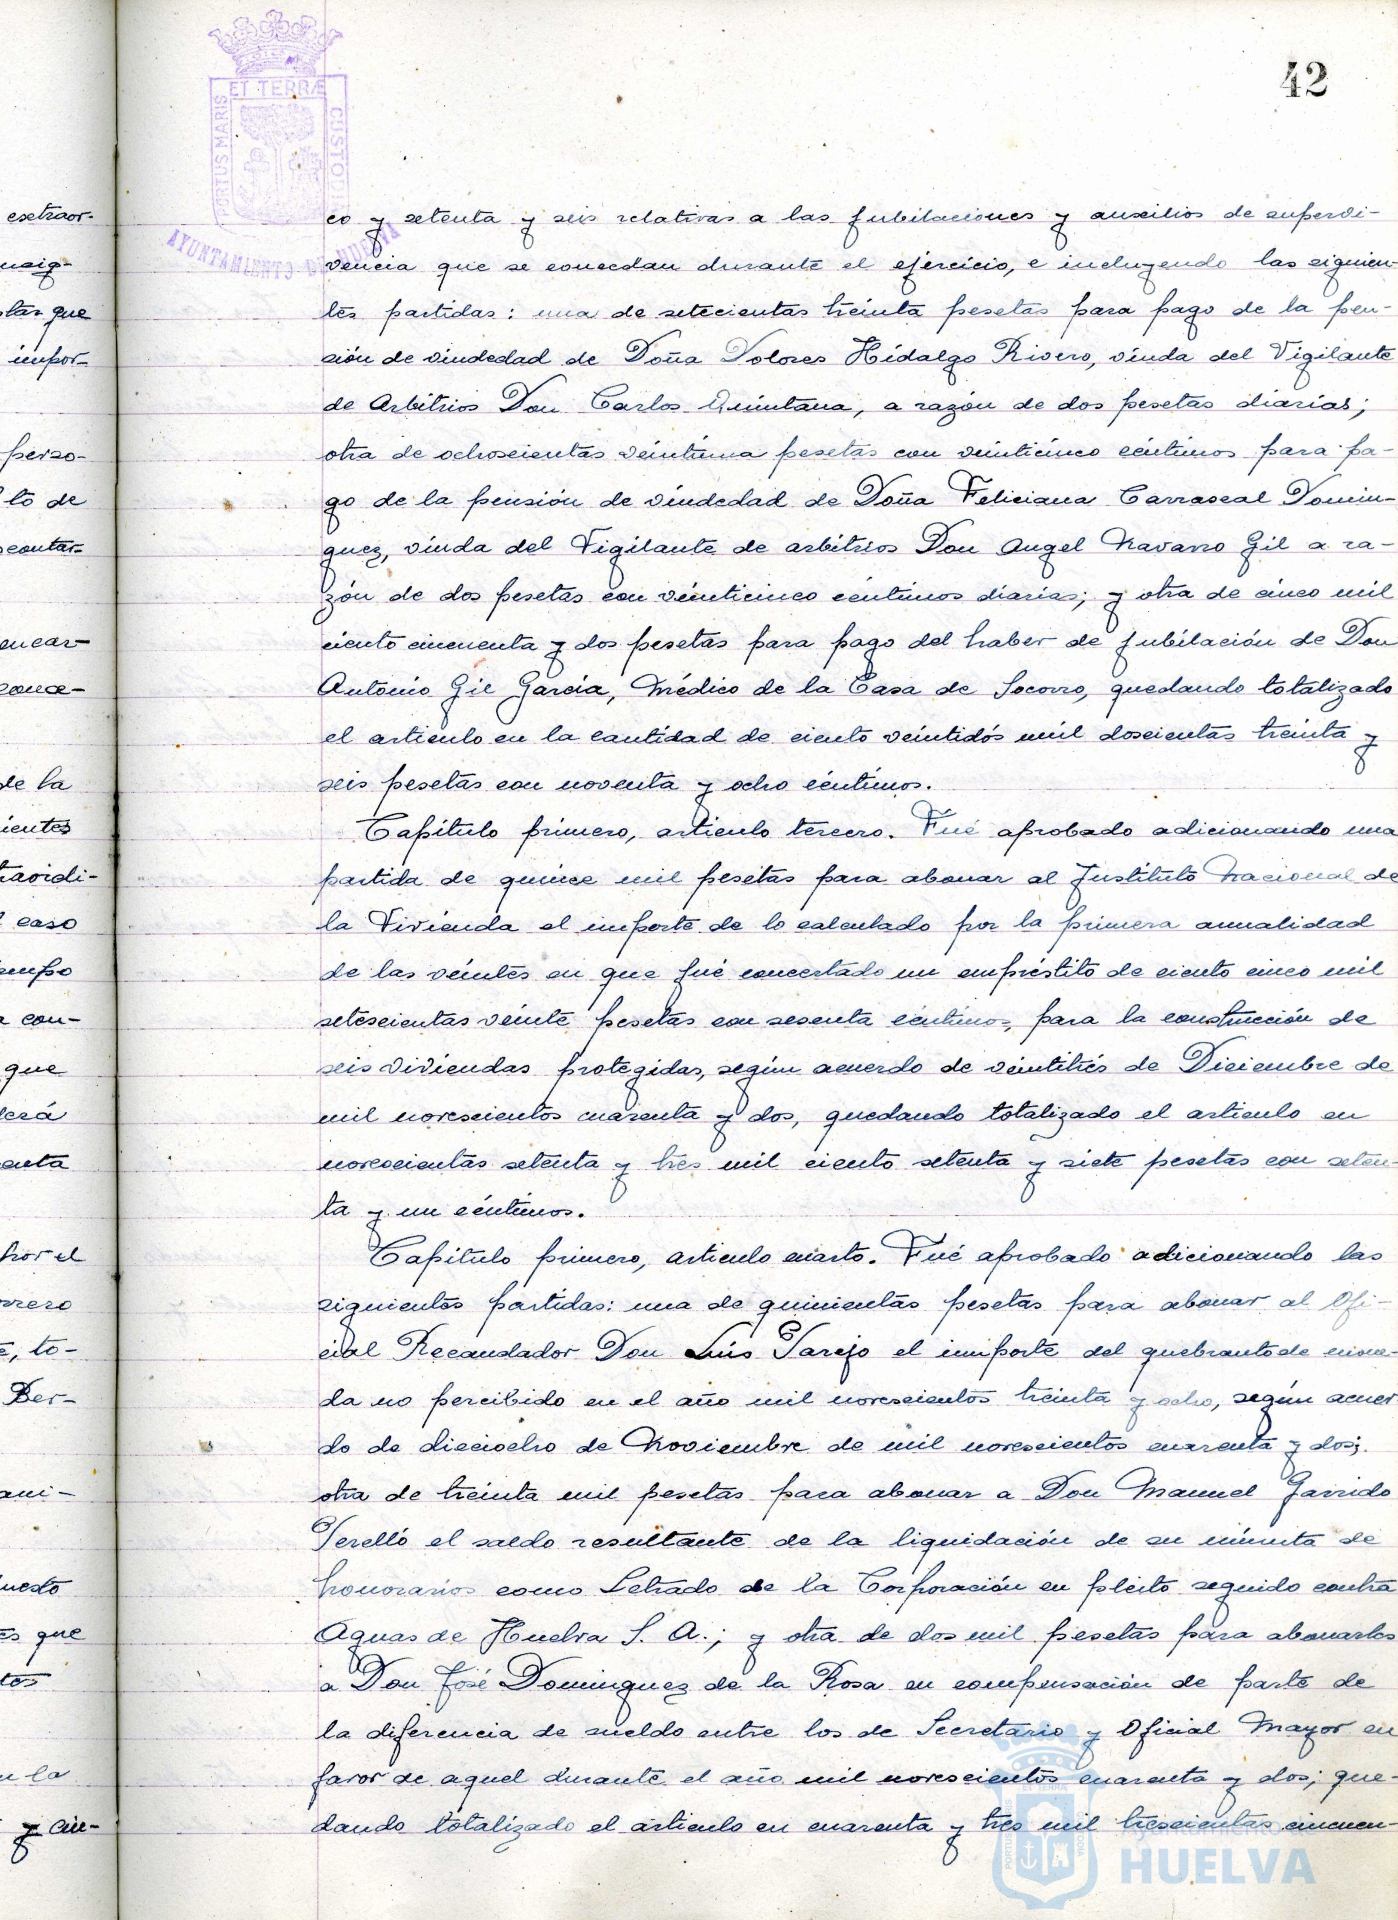 42
PORTUS MARIS ET TERRÆ CUSTODIA
AYUNTAMIENTO DE HUELVA
co y setenta y seis relativas a las jubilaciones y auxilios de supervi-
vencia que se concedan durante el ejercicio, e incluyendo las siguien-
tes partidas: una de setecientas treinta pesetas para pago de la pen-
sión de viudedad de Doña Dolores Hidalgo Rivero, viuda del Vigilante
de Arbitrios Don Carlos Quintana, a razón de dos pesetas diarias;
otra de ochoscientas veintiuna pesetas con veinticinco céntimos para pa-
go de la pensión de viudedad de Doña Feliciana Carrascal Domin-
guez, viuda del Vigilante de arbitrios Don Angel Navarro Gil a ra-
zón de dos pesetas con veinticinco céntimos diarias; y otra de cinco mil
ciento cincuenta y dos pesetas para pago del haber de jubilación de Don
Antonio Gil García, Médico de la Casa de Socorro, quedando totalizado
el articulo en la cantidad de ciento veintidós mil doscientas treinta y
seis pesetas con noventa y ocho céntimos.
Capítulo primero, articulo tercero. Fué aprobado adicionando una
partida de quince mil pesetas para abonar al Instituto Nacional de
la Vivienda el importe de lo calculado por la primera anualidad
de las veintes en que fué concertado un empréstito de ciento cinco mil
setescientas veinte pesetas con sesenta céntimos, para la construcción de
seis viviendas protegidas, según acuerdo de veintitrés de Diciembre de
mil novescientos cuarenta y dos, quedando totalizado el articulo en
novescientas setenta y tres mil ciento setenta y siete pesetas con seten-
ta y un céntimos.
Capítulo primero, articulo cuarto. Fué aprobado adicionando las
siguientes partidas: una de quinientas pesetas para abonar al Ofi-
cial Recaudador Don Luis Tarejo el importe del quebranto de mone-
da no percibido en el año mil novescientos treinta y ocho, según acuer
do de dieciocho de Noviembre de mil novescientos cuarenta y dos;
otra de treinta mil pesetas para abonar a Don Manuel Garrido
Perelló el saldo resultante de la liquidación de su minuta de
honorarios como Letrado de la Corporación en pleito seguido contra
Aguas de Huelva S. A.; y otra de dos mil pesetas para abonarlas
a Don José Dominguez de la Rosa en compensación de parte de
la diferencia de sueldo entre los de Secretario y Oficial Mayor en
favor de aquel durante el año mil novescientos cuarenta y dos; que-
dando totalizado el articulo en cuarenta y tres mil trescientas cincuen-
Ayuntamiento de
HUELVA
extraor-
tas que
impor-
perso-
to de
encar-
conce-
de la
caso
que
por el
to-
Ber-
es que
y cin-